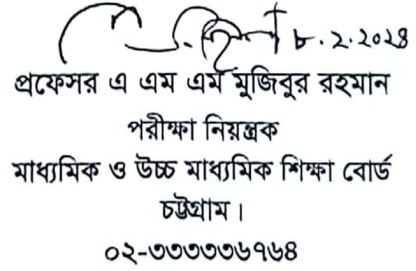 ৮.২.২০২৪
প্রফেসর এ এম এম মুজিবুর রহমান
পরীক্ষা নিয়ন্ত্রক
মাধ্যমিক ও উচ্চ মাধ্যমিক শিক্ষা বোর্ড
চট্টগ্রাম।
০২-৩৩৩৩৩৬৭৬৪